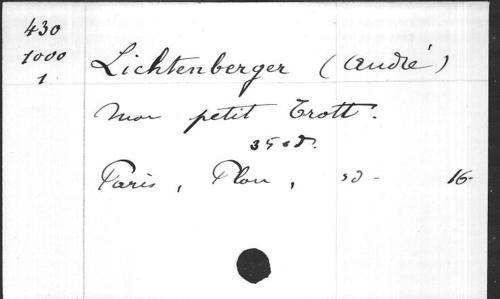 430
1000
1
Lichtenberger (André)
Mon petit Trott.
35 ed.
Paris, Plon, sd - 16-